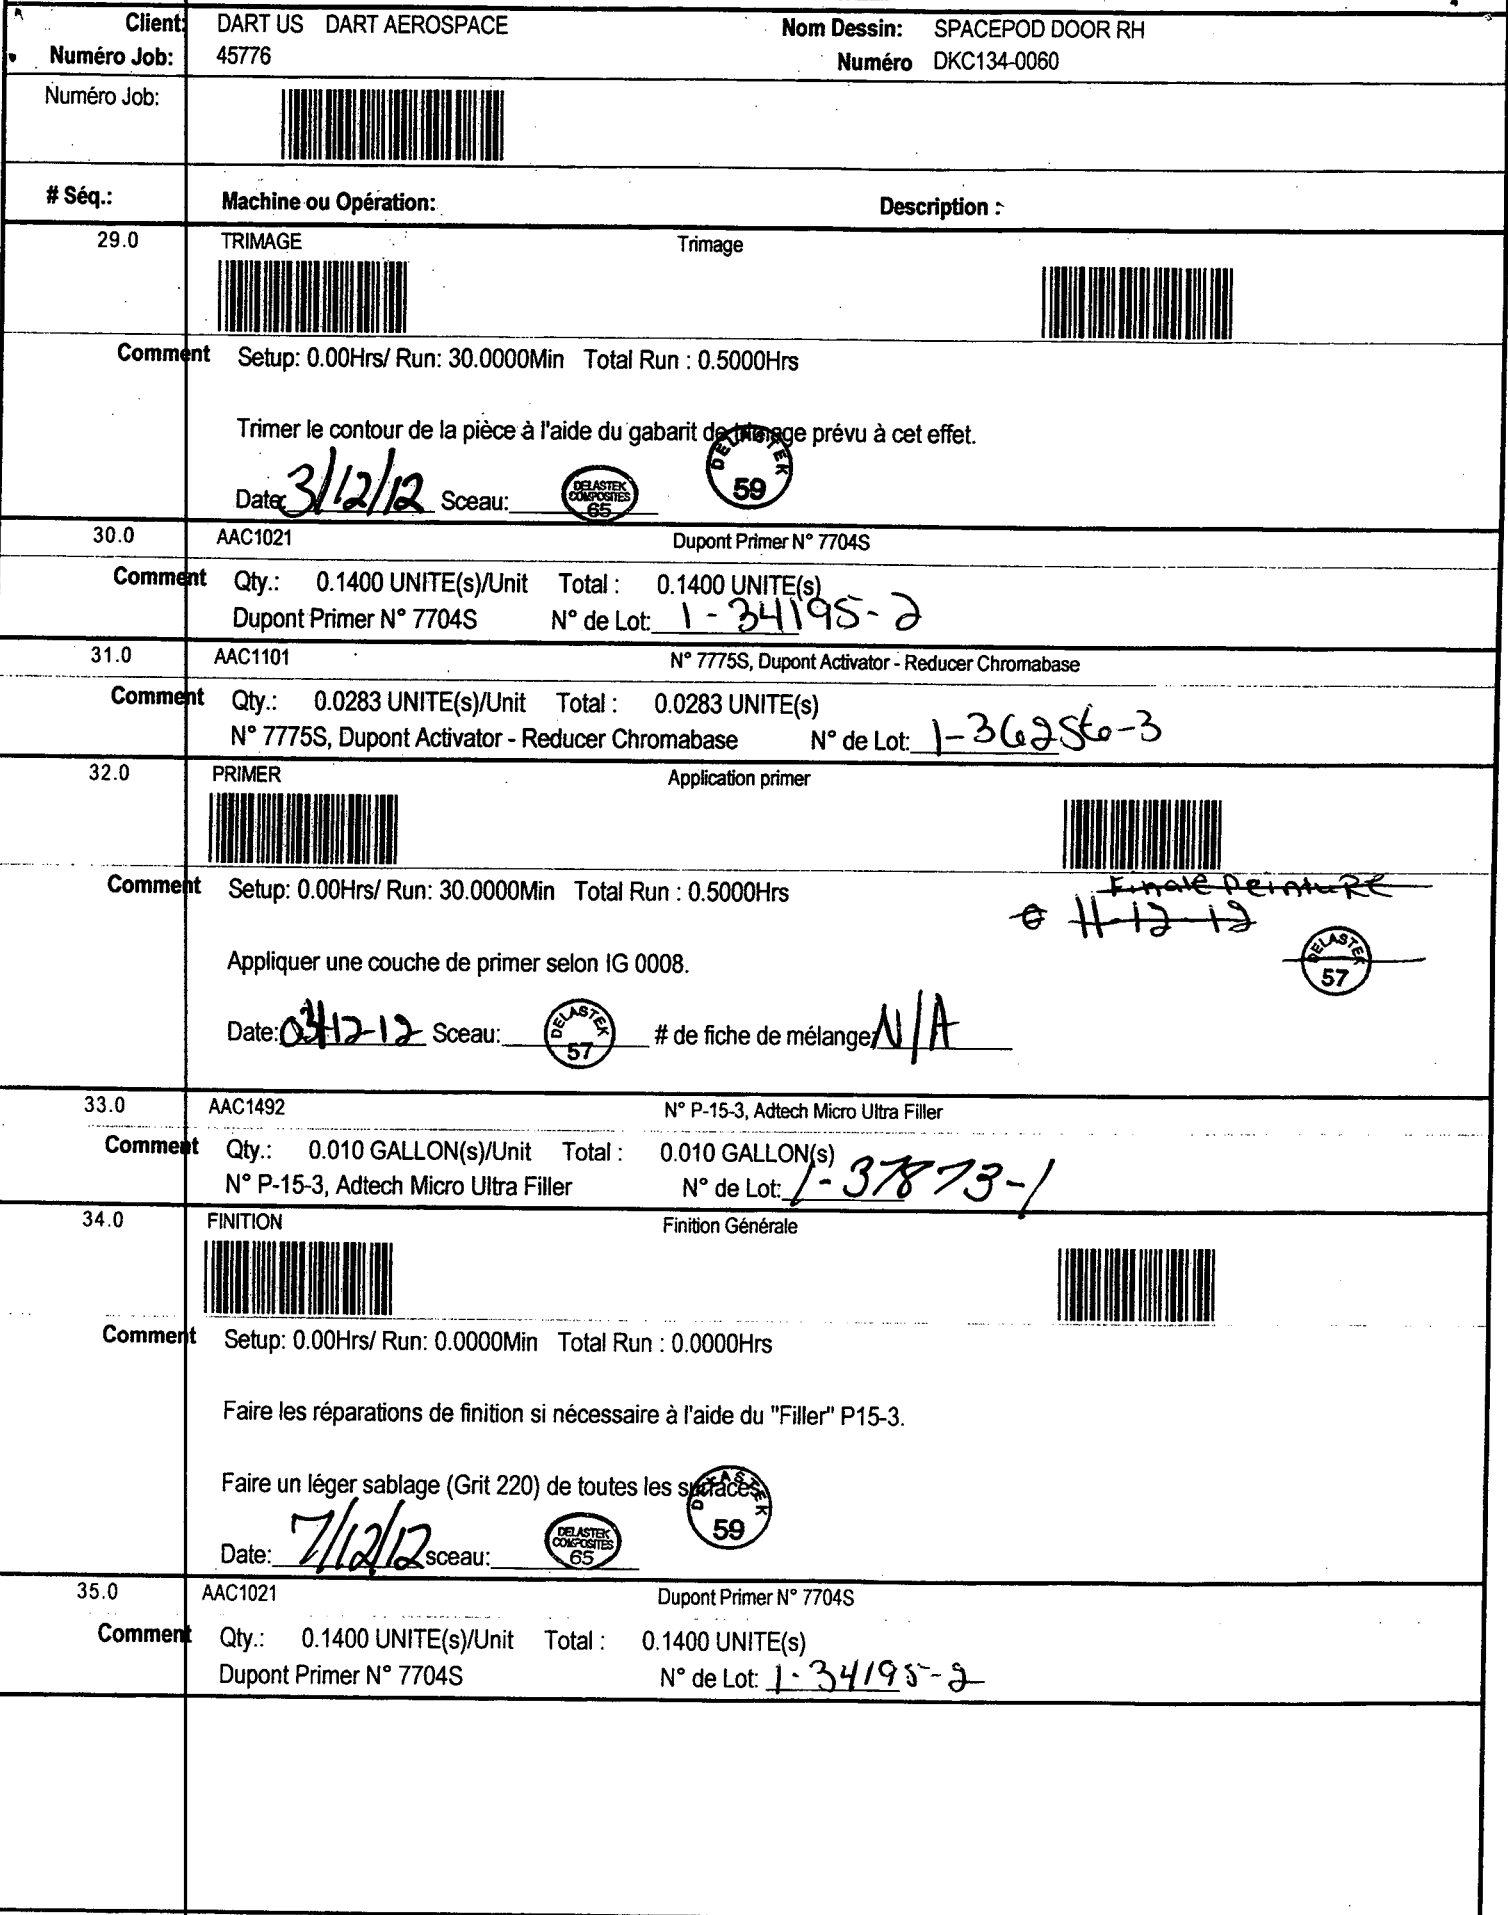 Client: DART US DART AEROSPACE Nom Dessin: SPACEPOD DOOR RH
Numéro Job: 45776 Numéro DKC134-0060
Numéro Job:
# Séq.: Machine ou Opération: Description :
29.0 TRIMAGE Trimage
Comment Setup: 0.00Hrs/ Run: 30.0000Min Total Run : 0.5000Hrs
Trimer le contour de la pièce à l'aide du gabarit de trimage prévu à cet effet.
DELASTEK 59
Date: 3/12/12 Sceau: DELASTEK COMPOSITES 65
30.0 AAC1021 Dupont Primer N° 7704S
Comment Qty.: 0.1400 UNITE(s)/Unit Total : 0.1400 UNITE(s)
Dupont Primer N° 7704S N° de Lot: 1-34195-2
31.0 AAC1101 N° 7775S, Dupont Activator - Reducer Chromabase
Comment Qty.: 0.0283 UNITE(s)/Unit Total : 0.0283 UNITE(s)
N° 7775S, Dupont Activator - Reducer Chromabase N° de Lot: 1-36256-3
32.0 PRIMER Application primer
Comment Setup: 0.00Hrs/ Run: 30.0000Min Total Run : 0.5000Hrs
Finale Peinture
11-12-12
DELASTEK 57
Appliquer une couche de primer selon IG 0008.
Date: 03-12-12 Sceau: DELASTEK 57 # de fiche de mélange: N/A
33.0 AAC1492 N° P-15-3, Adtech Micro Ultra Filler
Comment Qty.: 0.010 GALLON(s)/Unit Total : 0.010 GALLON(s)
N° P-15-3, Adtech Micro Ultra Filler N° de Lot: 1-37873-1
34.0 FINITION Finition Générale
Comment Setup: 0.00Hrs/ Run: 0.0000Min Total Run : 0.0000Hrs
Faire les réparations de finition si nécessaire à l'aide du "Filler" P15-3.
Faire un léger sablage (Grit 220) de toutes les surfaces
DELASTEK 59
Date: 7/12/12 sceau: DELASTEK COMPOSITES 65
35.0 AAC1021 Dupont Primer N° 7704S
Comment Qty.: 0.1400 UNITE(s)/Unit Total : 0.1400 UNITE(s)
Dupont Primer N° 7704S N° de Lot: 1-34195-2